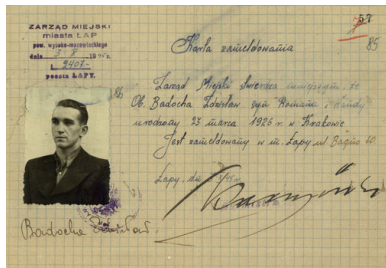 57.
85
ZARZĄD MIEJSKI
miasta ŁAP
pow. wysoko-mazowieckiego
dnia
L. 2407.
poczta ŁAPY.
Karta zameldowania
Zarząd Miejski stwierdza niniejszym, że
Ob. Badocha Zdzisław syn Romana i Wandy
urodzony 23 marca 1926 r. w Krakowie
Jest zameldowany w m. Łapy ul.
Łapy, dn.
Badocha Zdzisław.